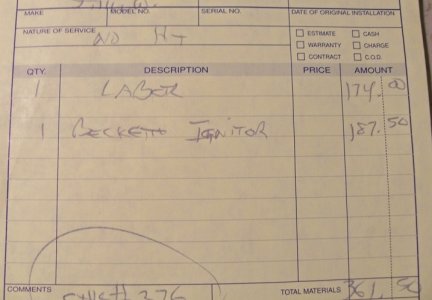 MAKE MODEL NO. SERIAL NO. DATE OF ORIGINAL INSTALLATION
NATURE OF SERVICE NO HT
ESTIMATE CASH
WARRANTY CHARGE
CONTRACT C.O.D.
QTY. DESCRIPTION PRICE AMOUNT
1 LABER 174.00
1 BECKETT IGNITOR 187.50
COMMENTS 376 TOTAL MATERIALS 361.50